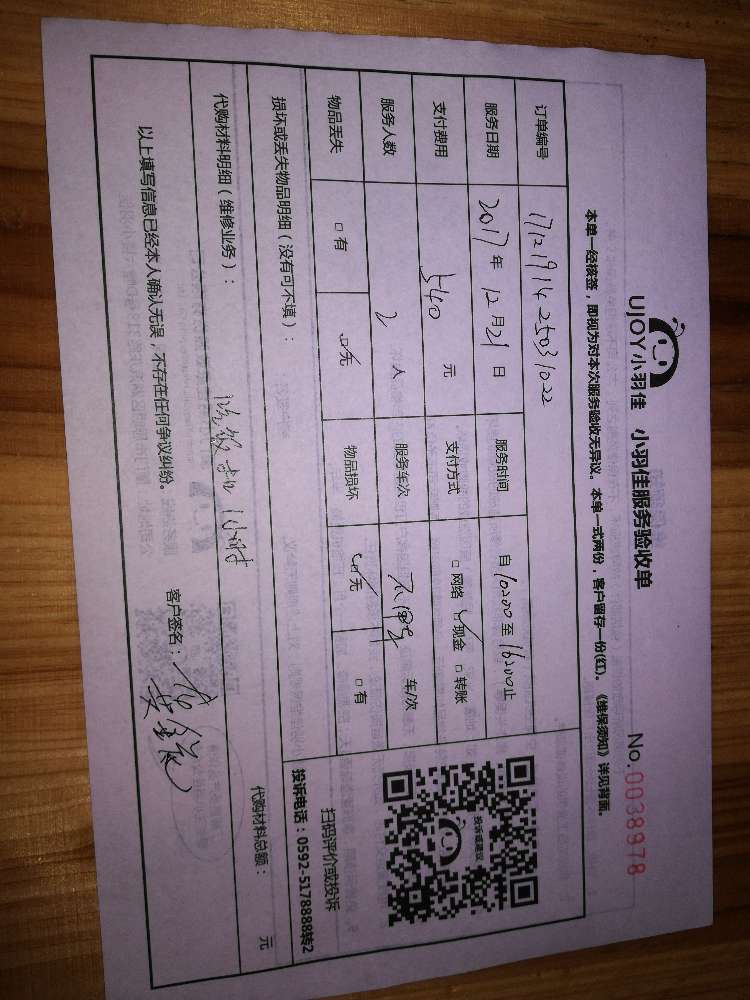 UJOY小羽佳 小羽佳服务验收单 No.0038978
本单一经核签，即视为对本次服务验收无异议。本单一式两份，客户留存一份(红)。《维保须知》详见背面。
订单编号 1712191425031022
服务日期 2017年12月21日 服务时间 自10:00至16:00止
支付费用 540元 支付方式 □网络 ☑现金 □转账
服务人数 2人 服务车次 车/次
物品丢失 □有 ☑无 物品损坏 ☑无 □有
损坏或丢失物品明细（没有可不填）：
代购材料明细（维修业务）： 代购材料总额： 元
吃饭 1小时
以上填写信息已经本人确认无误，不存在任何争议纠纷。 客户签名：
投诉或建议
扫码评价或投诉
投诉电话：0592-5178888转2